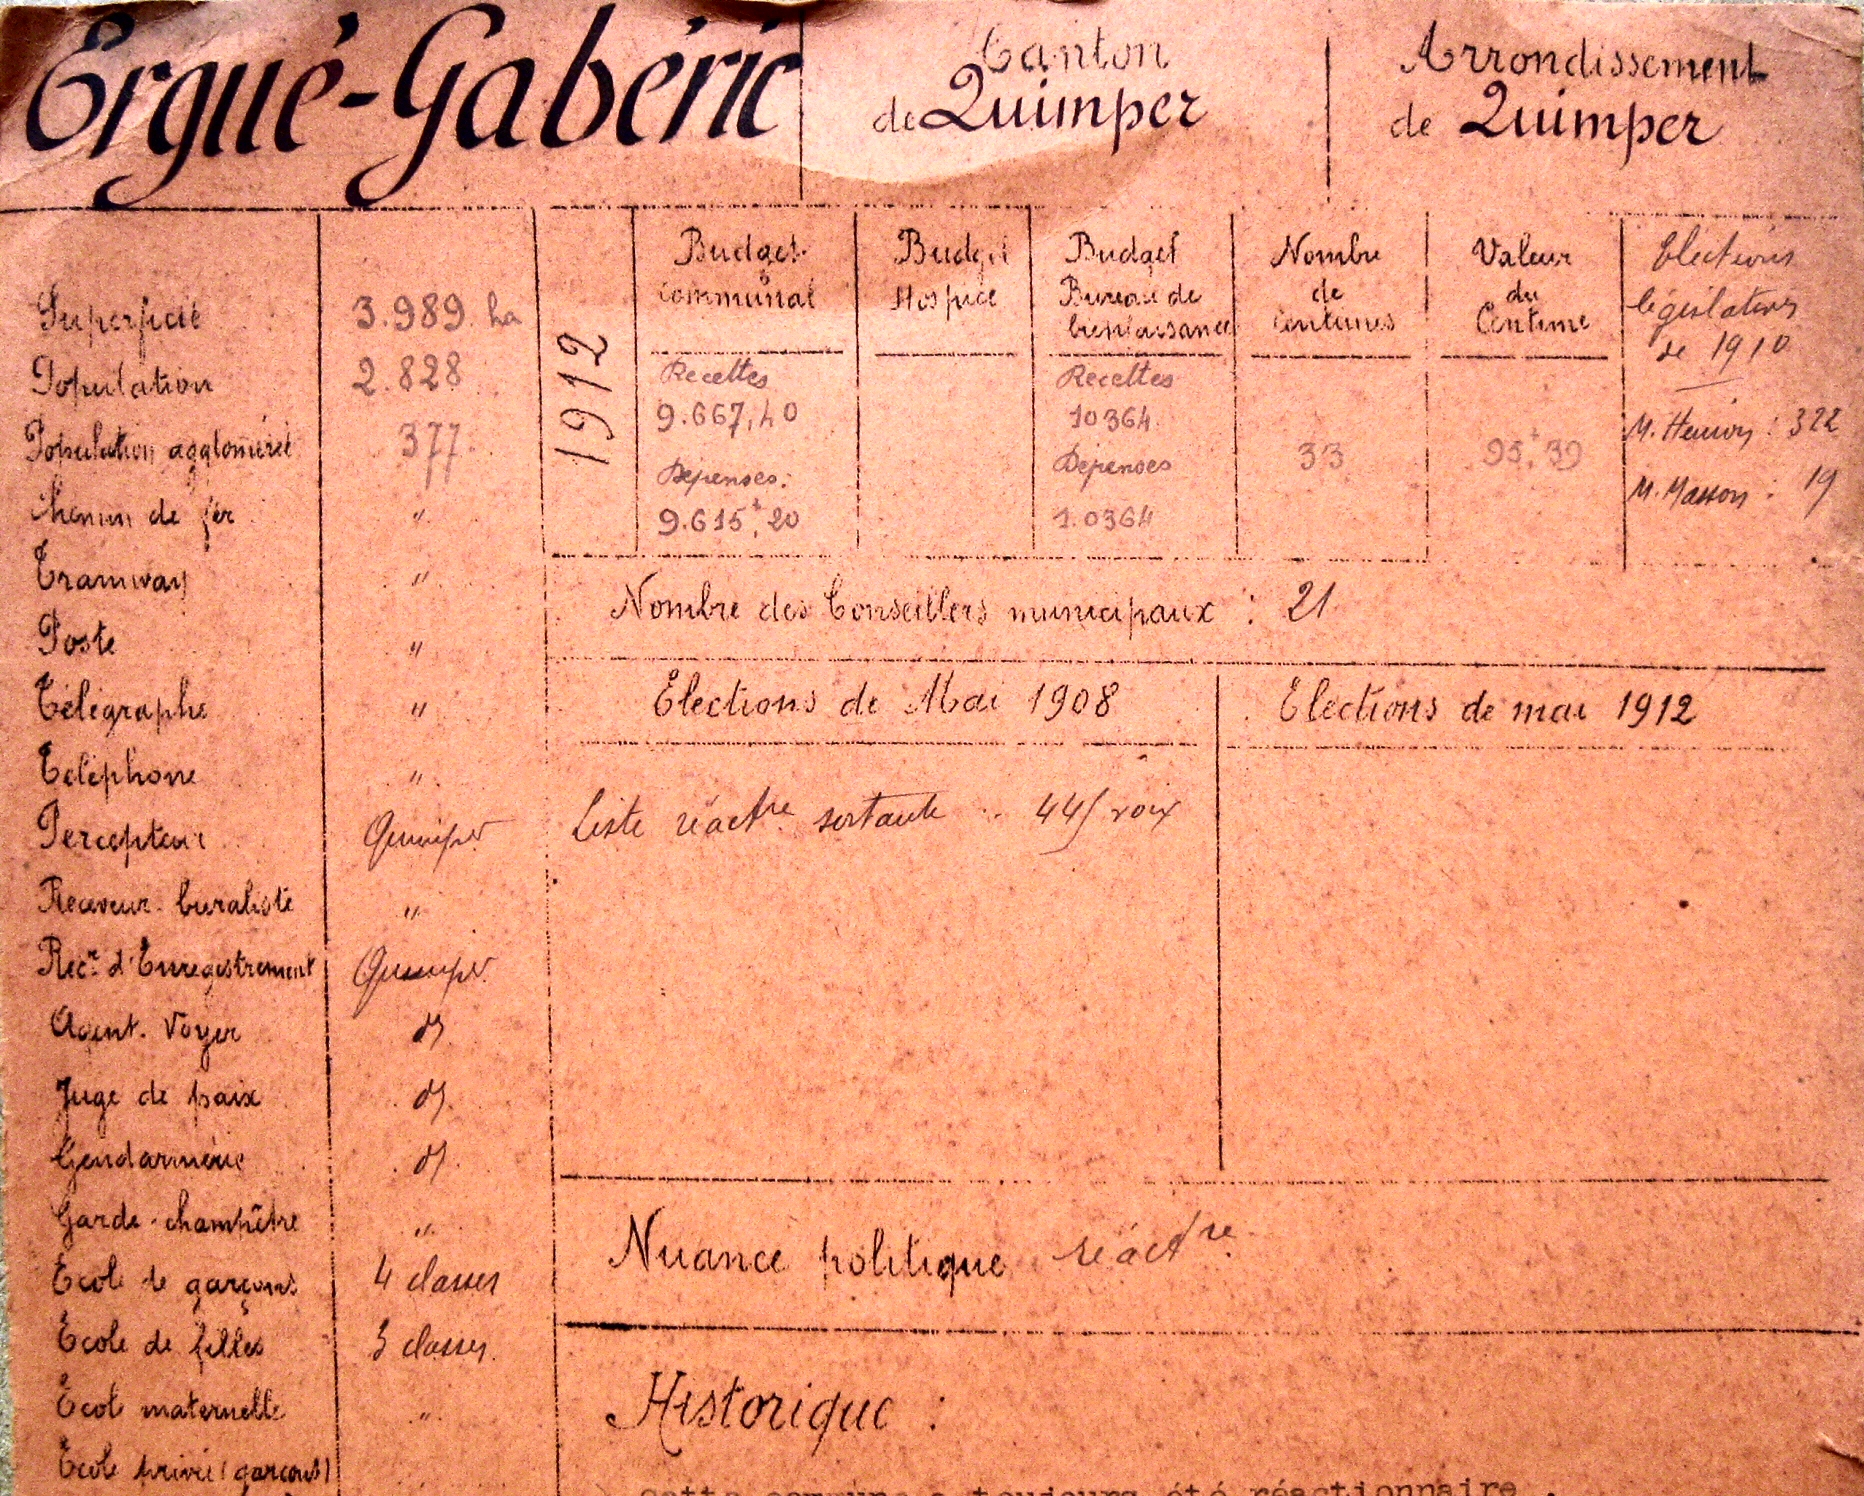 Ergué-Gabéric
Canton
de Quimper
Arrondissement
de Quimper
Superficie 3.989 ha
Population 2.828
Population agglomérée 377
Chemin de fer "
Tramway "
Poste "
Télégraphe "
Téléphone "
Percepteur Quimper
Receveur buraliste "
Recr d'Enregistrement Quimper
Agent-Voyer do
Juge de paix do
Gendarmerie do
Garde-champêtre "
Ecole de garçons 4 classes
Ecole de filles 3 classes
Ecole maternelle "
Ecole privée (garçons)
1912
Budget
communal
Recettes
9.667,40
Dépenses:
9.615f,20
Budget
Hospice
Budget
Bureau de
bienfaisance
Recettes
10364
Dépenses
1.0364
Nombre
de
Centimes
33
Valeur
du
Centime
95f,39
Elections
législatives
de 1910
M. : 322
M. Masson : 19
Nombre des Conseillers municipaux : 21
Elections de Mai 1908
Liste réactre sortante 445 voix
Elections de mai 1912
Nuance politique réactre
Historique :
Cette commune a toujours été réactionnaire.